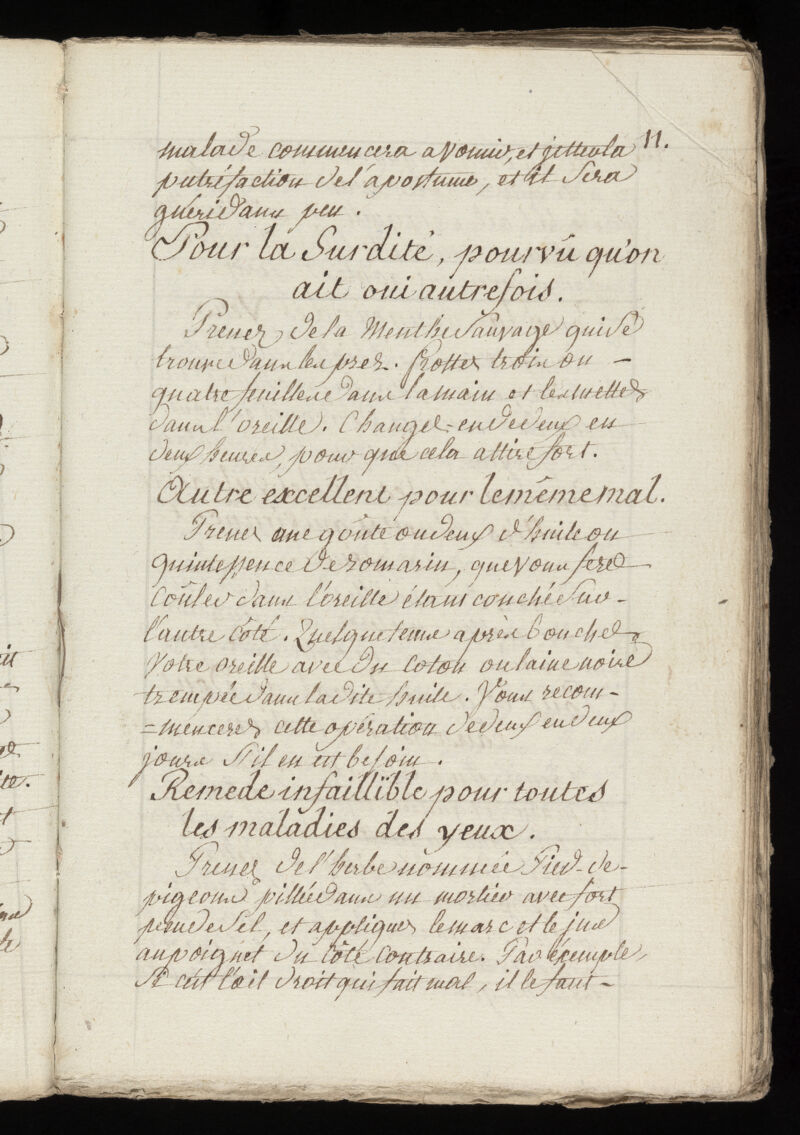 11.
malade commencera a vomir, et jettera la
putréfaction de l'apostume, et il sera
guéri dans peu.
Pour la Surdité, pourvû qu'on
ait oui autrefois.
Prenez de la Menthe Sauvage qui se
trouve dans les prez. frottez trois ou -
quatre feuilles dans la main et les mettez
dans l'oreille. Changez-en de deux en
deux heures, pour que cela attire fort.
Autre excellent pour le même mal.
Prenez une goûte ou deux d'huile ou
quintessence de romarin, que vous ferez
coûler dans l'oreille étant couché sur -
l'autre côté. Quelque tems après bouchez
votre oreille avec du coton ou laine noire
trempée dans la dite huile. Vous recom-
=mencerez cette opération de deux en deux
jours s'il en est besoin.
Remede infaillible pour toutes
les maladies des yeux.
Prenez de l'herbe nommée Pied-de-
pigeons pillée dans un mortier avec fort
peu de sel, et appliquez le marc et le jus
au poignet du côté contraire. Par éxemple,
si c'est l'œil droit qui fait mal, il le faut -